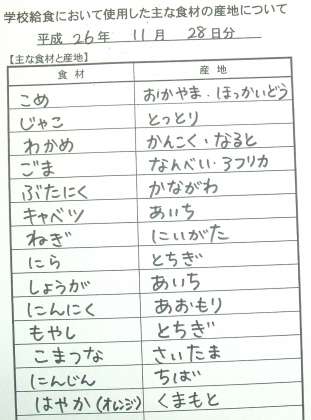 学校給食において使用した主な食材の産地について
平成 26 年 11 月 28 日分
【主な食材と産地】
食材 産地
こめ おかやま・ほっかいどう
じゃこ とっとり
わかめ かんこく・なると
ごま なんべい・アフリカ
ぶたにく かながわ
キャベツ あいち
ねぎ にいがた
にら とちぎ
しょうが あいち
にんにく あおもり
もやし とちぎ
こまつな さいたま
にんじん ちば
はやか(オレンジ) くまもと